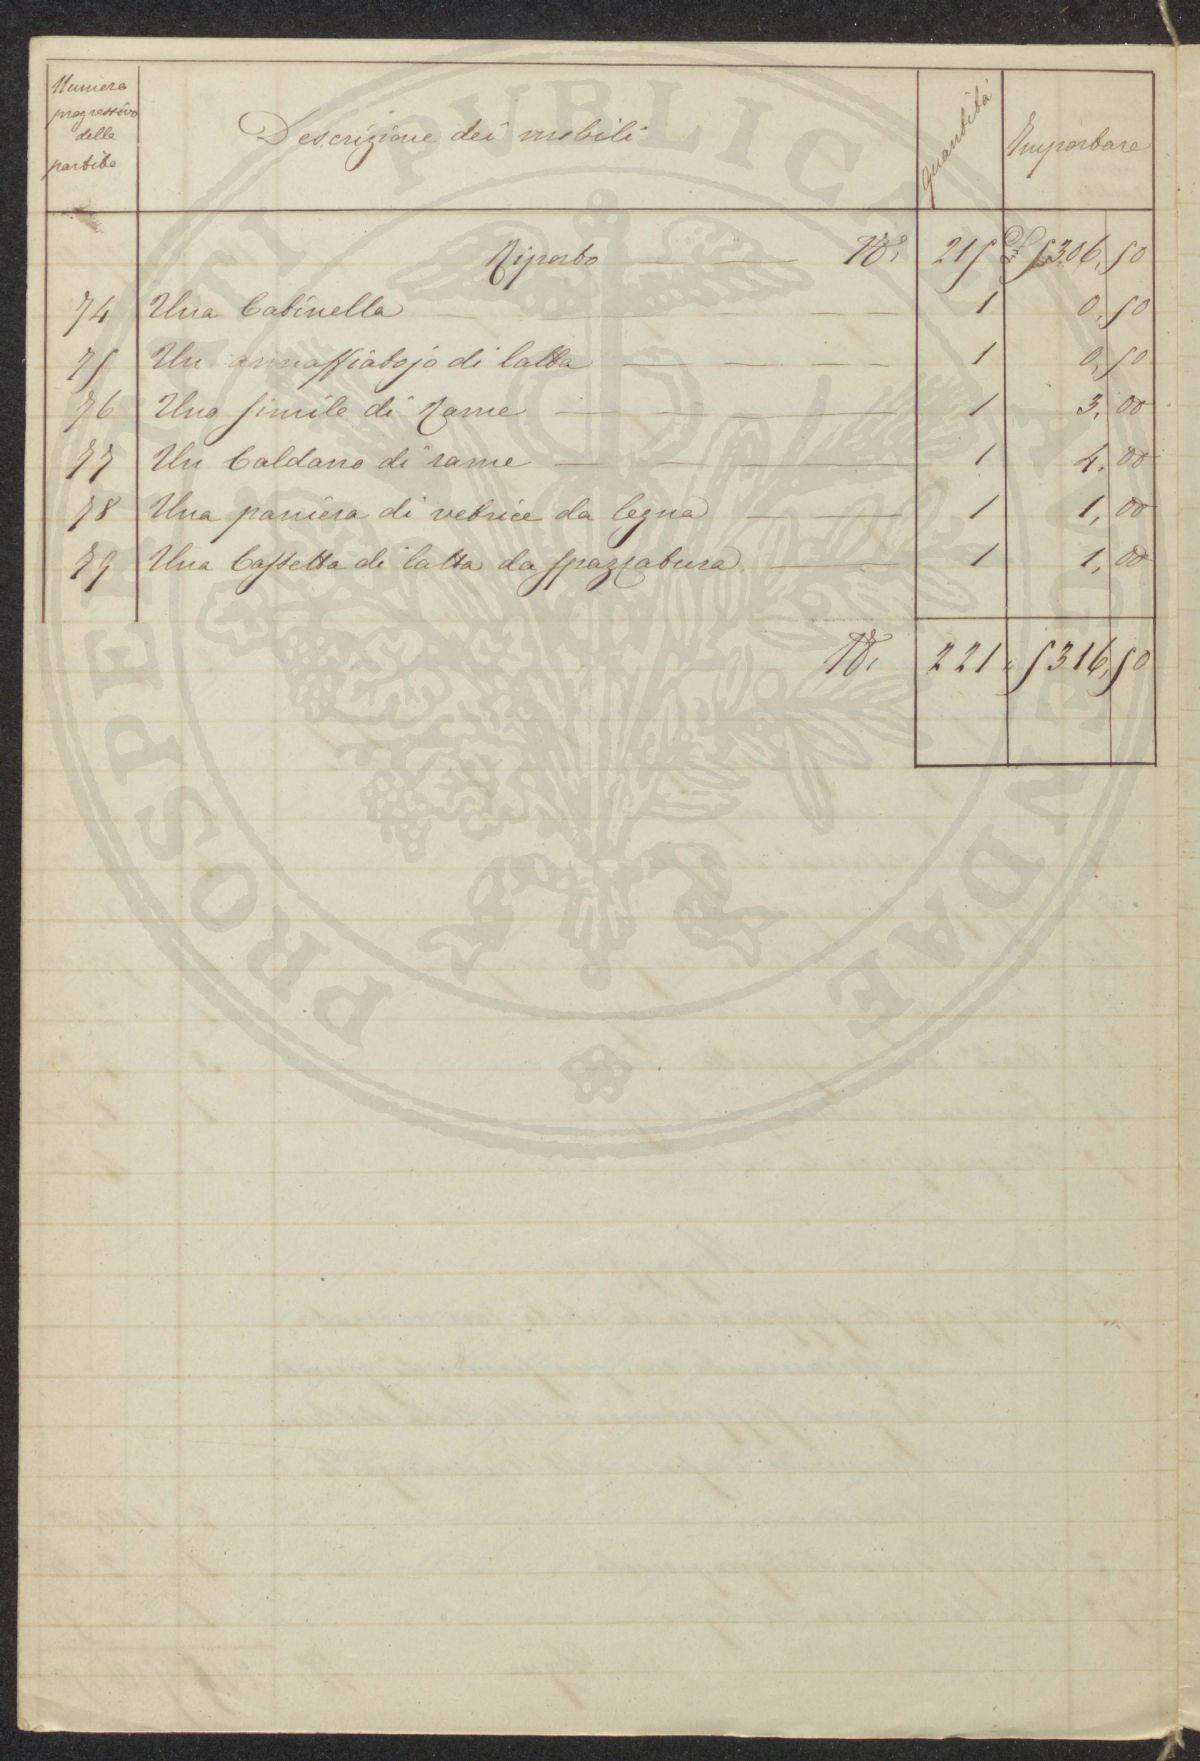 Numero
progressivo
delle
partite
Descrizione dei mobili
quantità
Importare
Riporto N°. 215 £ 5306,50
74 Una Catinella 1 0,50
75 Un annaffiatojo di latta 1 0,50
76 Uno simile di Rame 1 3,00
77 Un Caldano di rame 1 4,00
78 Una paniera di vetrice da legna 1 1,00
79 Una Cassetta di latta da spazzatura 1 1,00
N°. 221 " 5316,50
PROSPERITATI PUBLICAE AUGENDAE